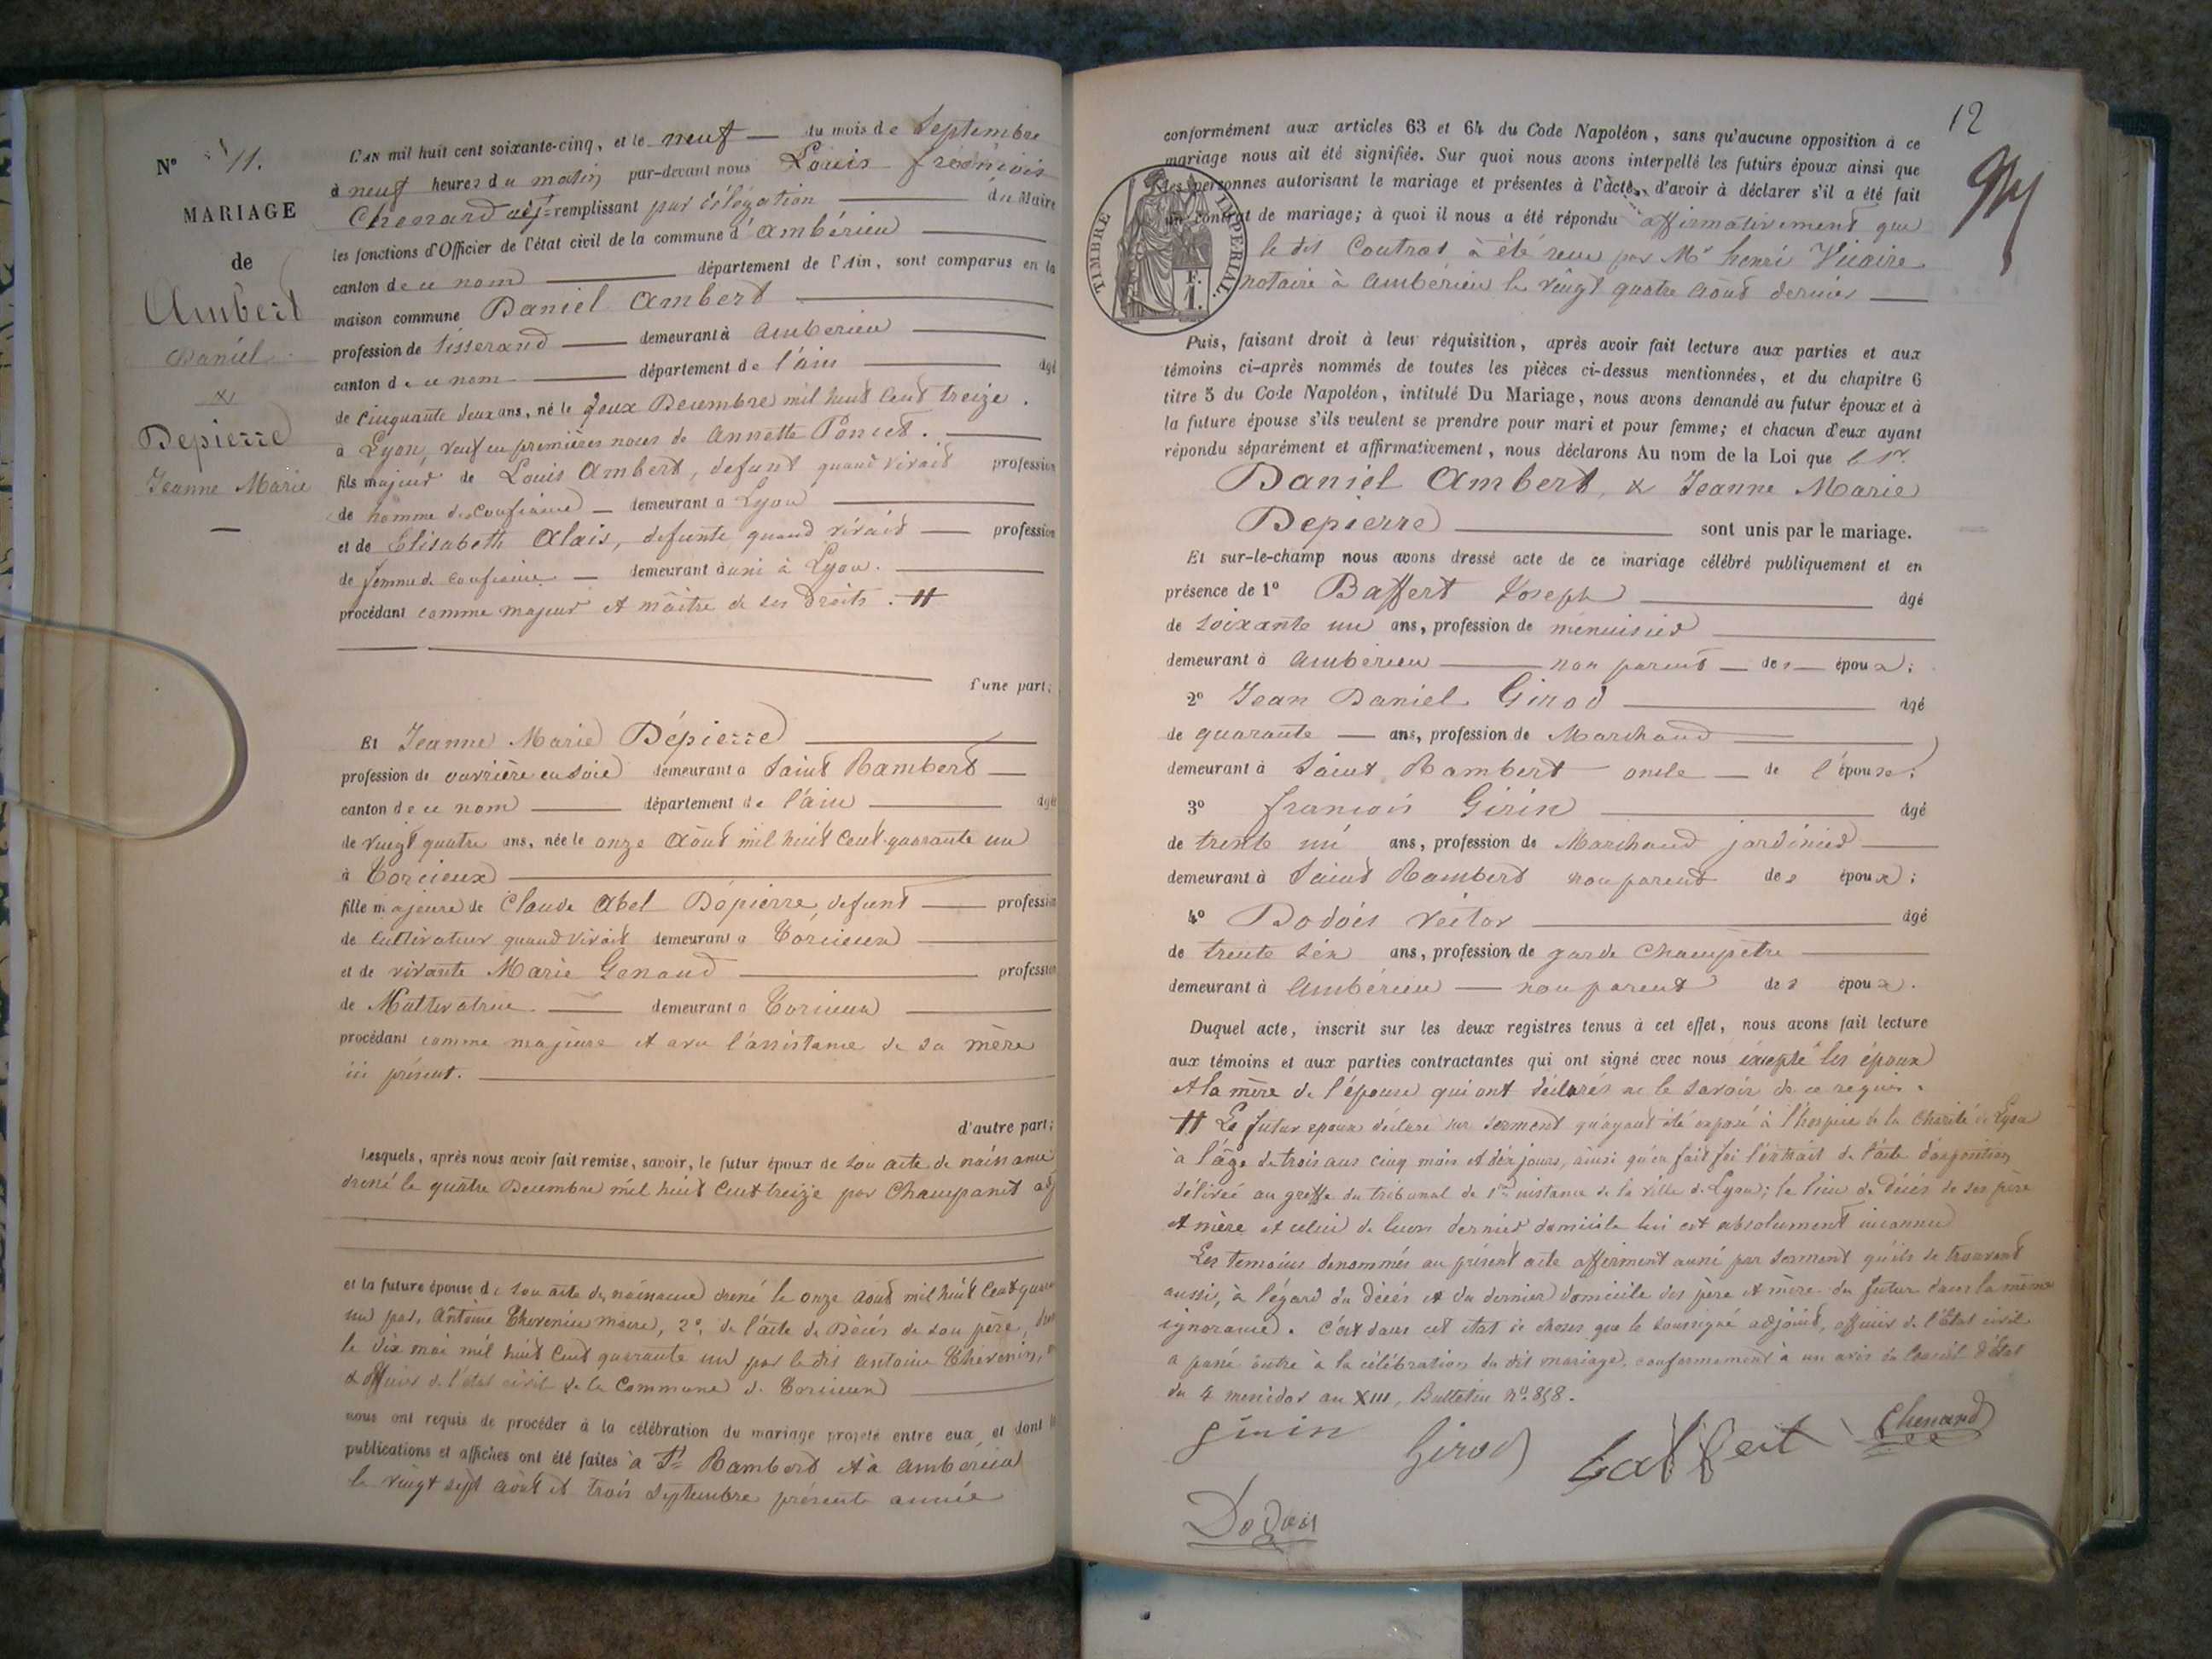 N° 11.
MARIAGE
de
Ambert
Daniel
&
Depierre
Jeanne Marie
L'AN mil huit cent soixante-cinq, et le neuf du mois de Septembre
à neuf heures du matin par-devant nous Louis François
Chenard adj. remplissant par délégation du Maire
les fonctions d'Officier de l'état civil de la commune d'Ambérieu
canton de ce nom département de l'Ain, sont comparus en la
maison commune Daniel Ambert
profession de tisserand demeurant à Ambérieu
canton de ce nom département de l'ain âgé
de cinquante deux ans, né le deux Decembre mil huit cent treize.
à Lyon, veuf en premières noces de Annette Poncet.
fils majeur de Louis Ambert, defunt quand vivait profession
de homme de confiance demeurant à Lyon
et de Elisabeth Alais, defunte quand vivait profession
de femme de confiance demeurant aussi à Lyon.
procédant comme majeur et maître de ses droits. #
d'une part;
Et Jeanne Marie Dépierre
profession de ouvrière en soie demeurant à Saint Rambert
canton de ce nom département de l'ain âgée
de vingt quatre ans, née le onze Août mil huit cent quarante un
à Torcieux
fille majeure de Claude Abel Dépierre, defunt profession
de cultivateur quand vivait demeurant à Torcieux
et de vivante Marie Genaud profession
de cultivatrice demeurant à Torcieux
procédant comme majeure et avec l'assistance de sa mère
ici présent.
d'autre part;
Lesquels, après nous avoir fait remise, savoir, le futur époux de son acte de naissance
dressé le quatre Decembre mil huit cent treize par Champanet adj
et la future épouse de son acte de naissance dressé le onze Août mil huit cent quarante
un par Antoine Thevenin maire, 2°, de l'acte de Décès de son père,
le dix mai mil huit cent quarante un par le dit Antoine Thevenin,
& officier de l'état civil de la Commune de Torcieux
nous ont requis de procéder à la célébration du mariage projeté entre eux, et dont les
publications et affiches ont été faites à St Rambert et à Ambérieu
le vingt sept août et trois septembre présente année
12
conformément aux articles 63 et 64 du Code Napoléon, sans qu'aucune opposition à ce
mariage nous ait été signifiée. Sur quoi nous avons interpellé les futurs époux ainsi que
les personnes autorisant le mariage et présentes à l'acte, d'avoir à déclarer s'il a été fait
un contrat de mariage; à quoi il nous a été répondu affirmativement que
le dit Contrat a été reçu par Me henri Vicaire
notaire à Ambérieu le vingt quatre Aout dernier
TIMBRE IMPERIAL.
F.
1.
Puis, faisant droit à leur réquisition, après avoir fait lecture aux parties et aux
témoins ci-après nommés de toutes les pièces ci-dessus mentionnées, et du chapitre 6
titre 5 du Code Napoléon, intitulé Du Mariage, nous avons demandé au futur époux et à
la future épouse s'ils veulent se prendre pour mari et pour femme; et chacun d'eux ayant
répondu séparément et affirmativement, nous déclarons Au nom de la Loi que le Sr
Daniel Ambert, & Jeanne Marie
Depierre sont unis par le mariage.
Et sur-le-champ nous avons dressé acte de ce mariage célébré publiquement et en
présence de 1° Baffert Joseph âgé
de soixante un ans, profession de menuisier
demeurant à Ambérieu non parent des époux;
2° Jean Daniel Girod âgé
de quarante ans, profession de Marchand
demeurant à Saint Rambert oncle de l'épouse;
3° françois Girin âgé
de trente un ans, profession de Marchand jardinier
demeurant à Saint Rambert non parent des époux;
4° Dodois Victor âgé
de trente six ans, profession de garde Champêtre
demeurant à Ambérieu non parent des époux.
Duquel acte, inscrit sur les deux registres tenus à cet effet, nous avons fait lecture
aux témoins et aux parties contractantes qui ont signé avec nous excepté les époux
et la mère de l'épouse qui ont déclarés ne le savoir de ce requis.
# Le futur epoux déclare sur serment qu'ayant été exposé à l'hospice de la Charité de Lyon
à l'âge de trois ans cinq mois et dix jours, ainsi qu'en fait foi l'extrait de l'acte d'exposition
délivré au greffe du tribunal de 1re instance de la ville de Lyon; le lieu de Décès de ses père
et mère et celui de leur dernier domicile lui est absolument inconnu
Les temoins denommés au présent acte affirment aussi par serment qu'ils se trouvent
aussi, à l'égard du décès et du dernier domicile des père et mère du futur dans la même
ignorance. C'est dans cet état de choses que le soussigné adjoint, officier de l'Etat civil
a passé outre à la célébration du dit mariage conformément à un avis du Conseil d'Etat
du 4 messidor an XIII, Bulletin n° 858.
Girin Girod Baffert Chenard
Dodois